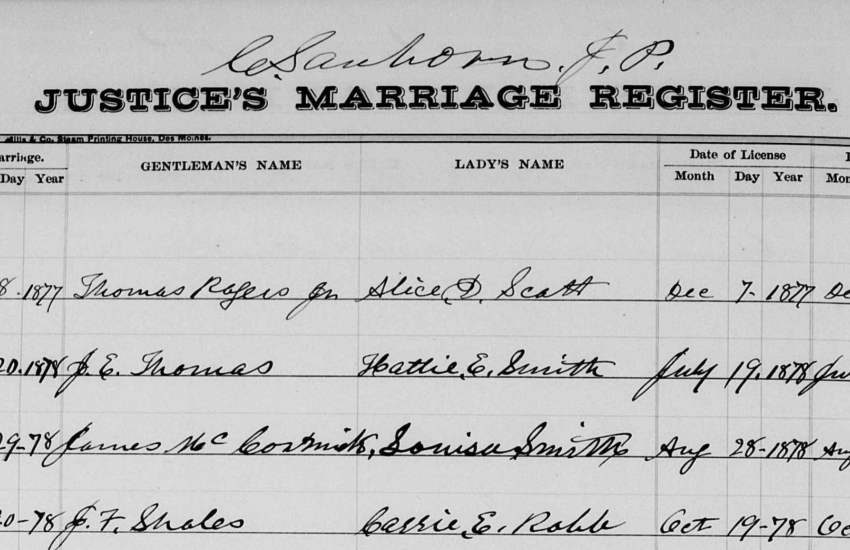 C. Sanborn. J. P.
JUSTICE'S MARRIAGE REGISTER.
Mills & Co. Steam Printing House, Des Moines.
arriage. GENTLEMAN'S NAME LADY'S NAME Date of License
Day Year Month Day Year Mon
8. 1877 Thomas Rogers Jr Alice, D. Scott Dec 7- 1877 De
20. 1878 J. E. Thomas Hattie, E. Smith July 19. 1878 Ju
29-78 James McCormick, Louisa Smith Aug 28-1878 Aug
20-78 J. F. Shales Carrie, E. Robb Oct 19-78 Oc